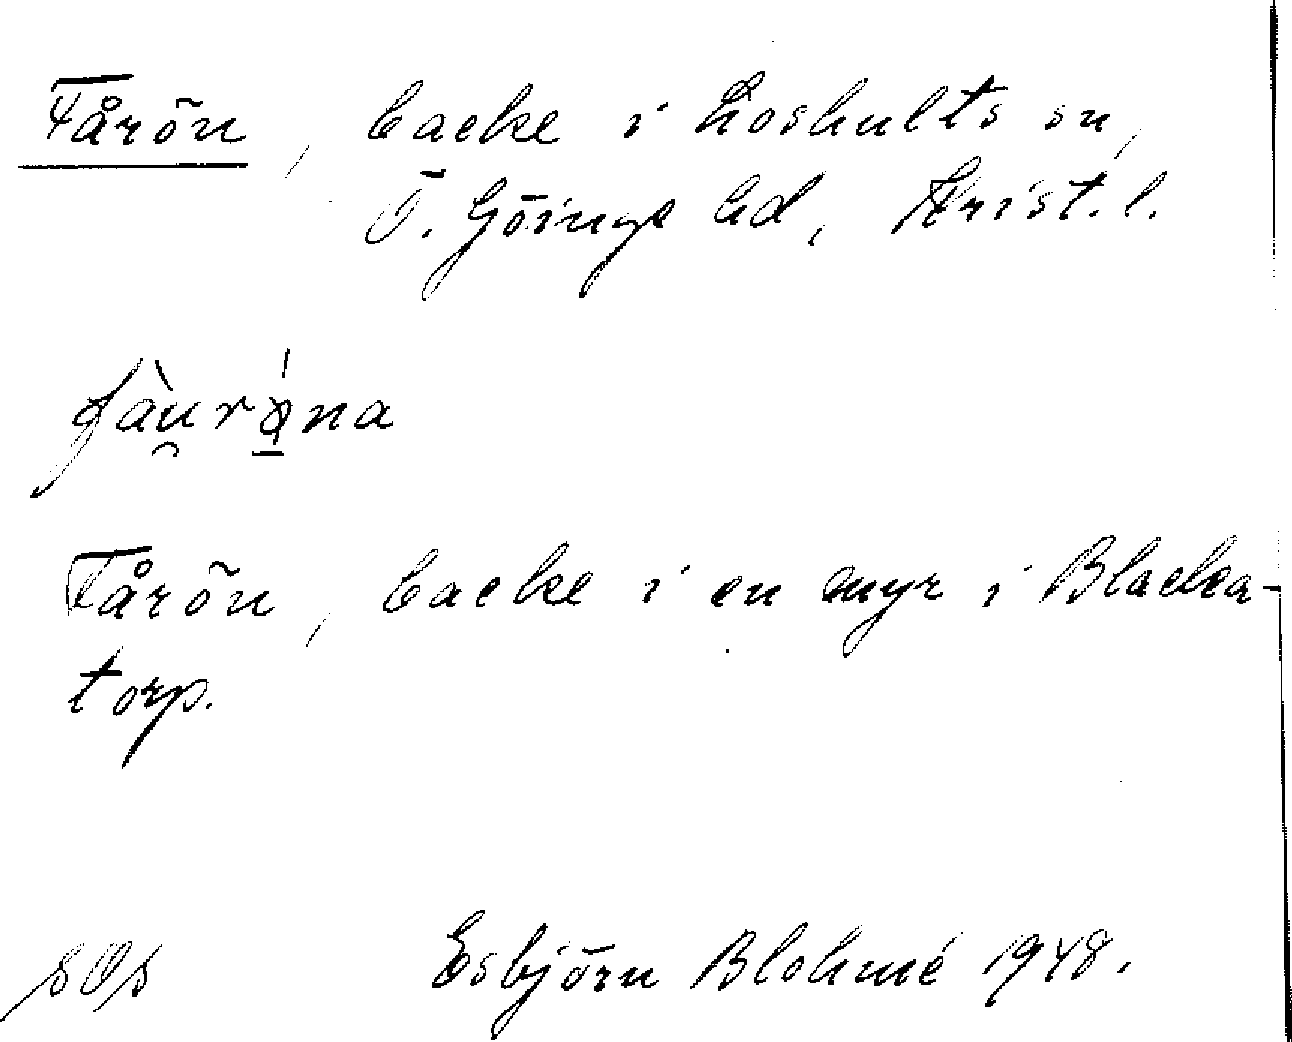 Fårön, backe i Loshults sn,
Ö. Göinge hd, Krist. l.
fàu̯rǿ̱na
Fårön, backe i en myr i Blacka-
torp.
sOs Esbjörn Blohmé 1948.